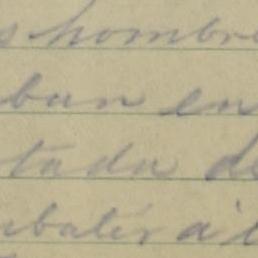 s hombre
ban en
tada de
mbatir á